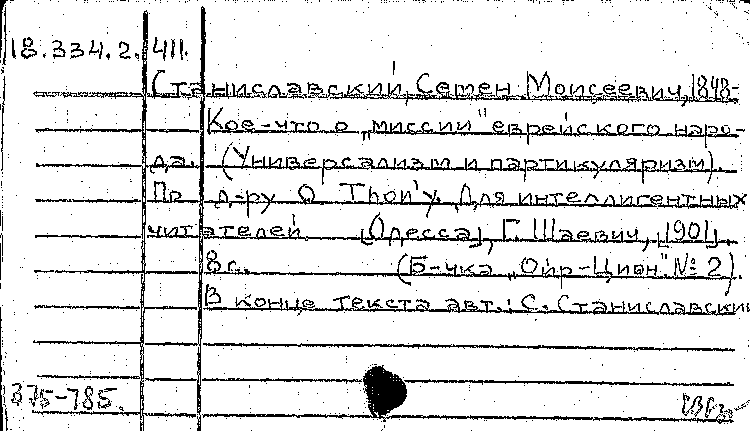 18.334.2.411.
Станиславский, Семен Моисеевич, 1848-
Кое-что о „миссии" еврейского наро-
да. (Универсализм и партикуляризм).
По д-ру O Thon'y. Для интеллигентных
читателей. [Одесса], Г. Шаевич, [1901].
8с. (Б-чка „Ойр-Цион" № 2).
В конце текста авт.: С. Станиславский
375-785.